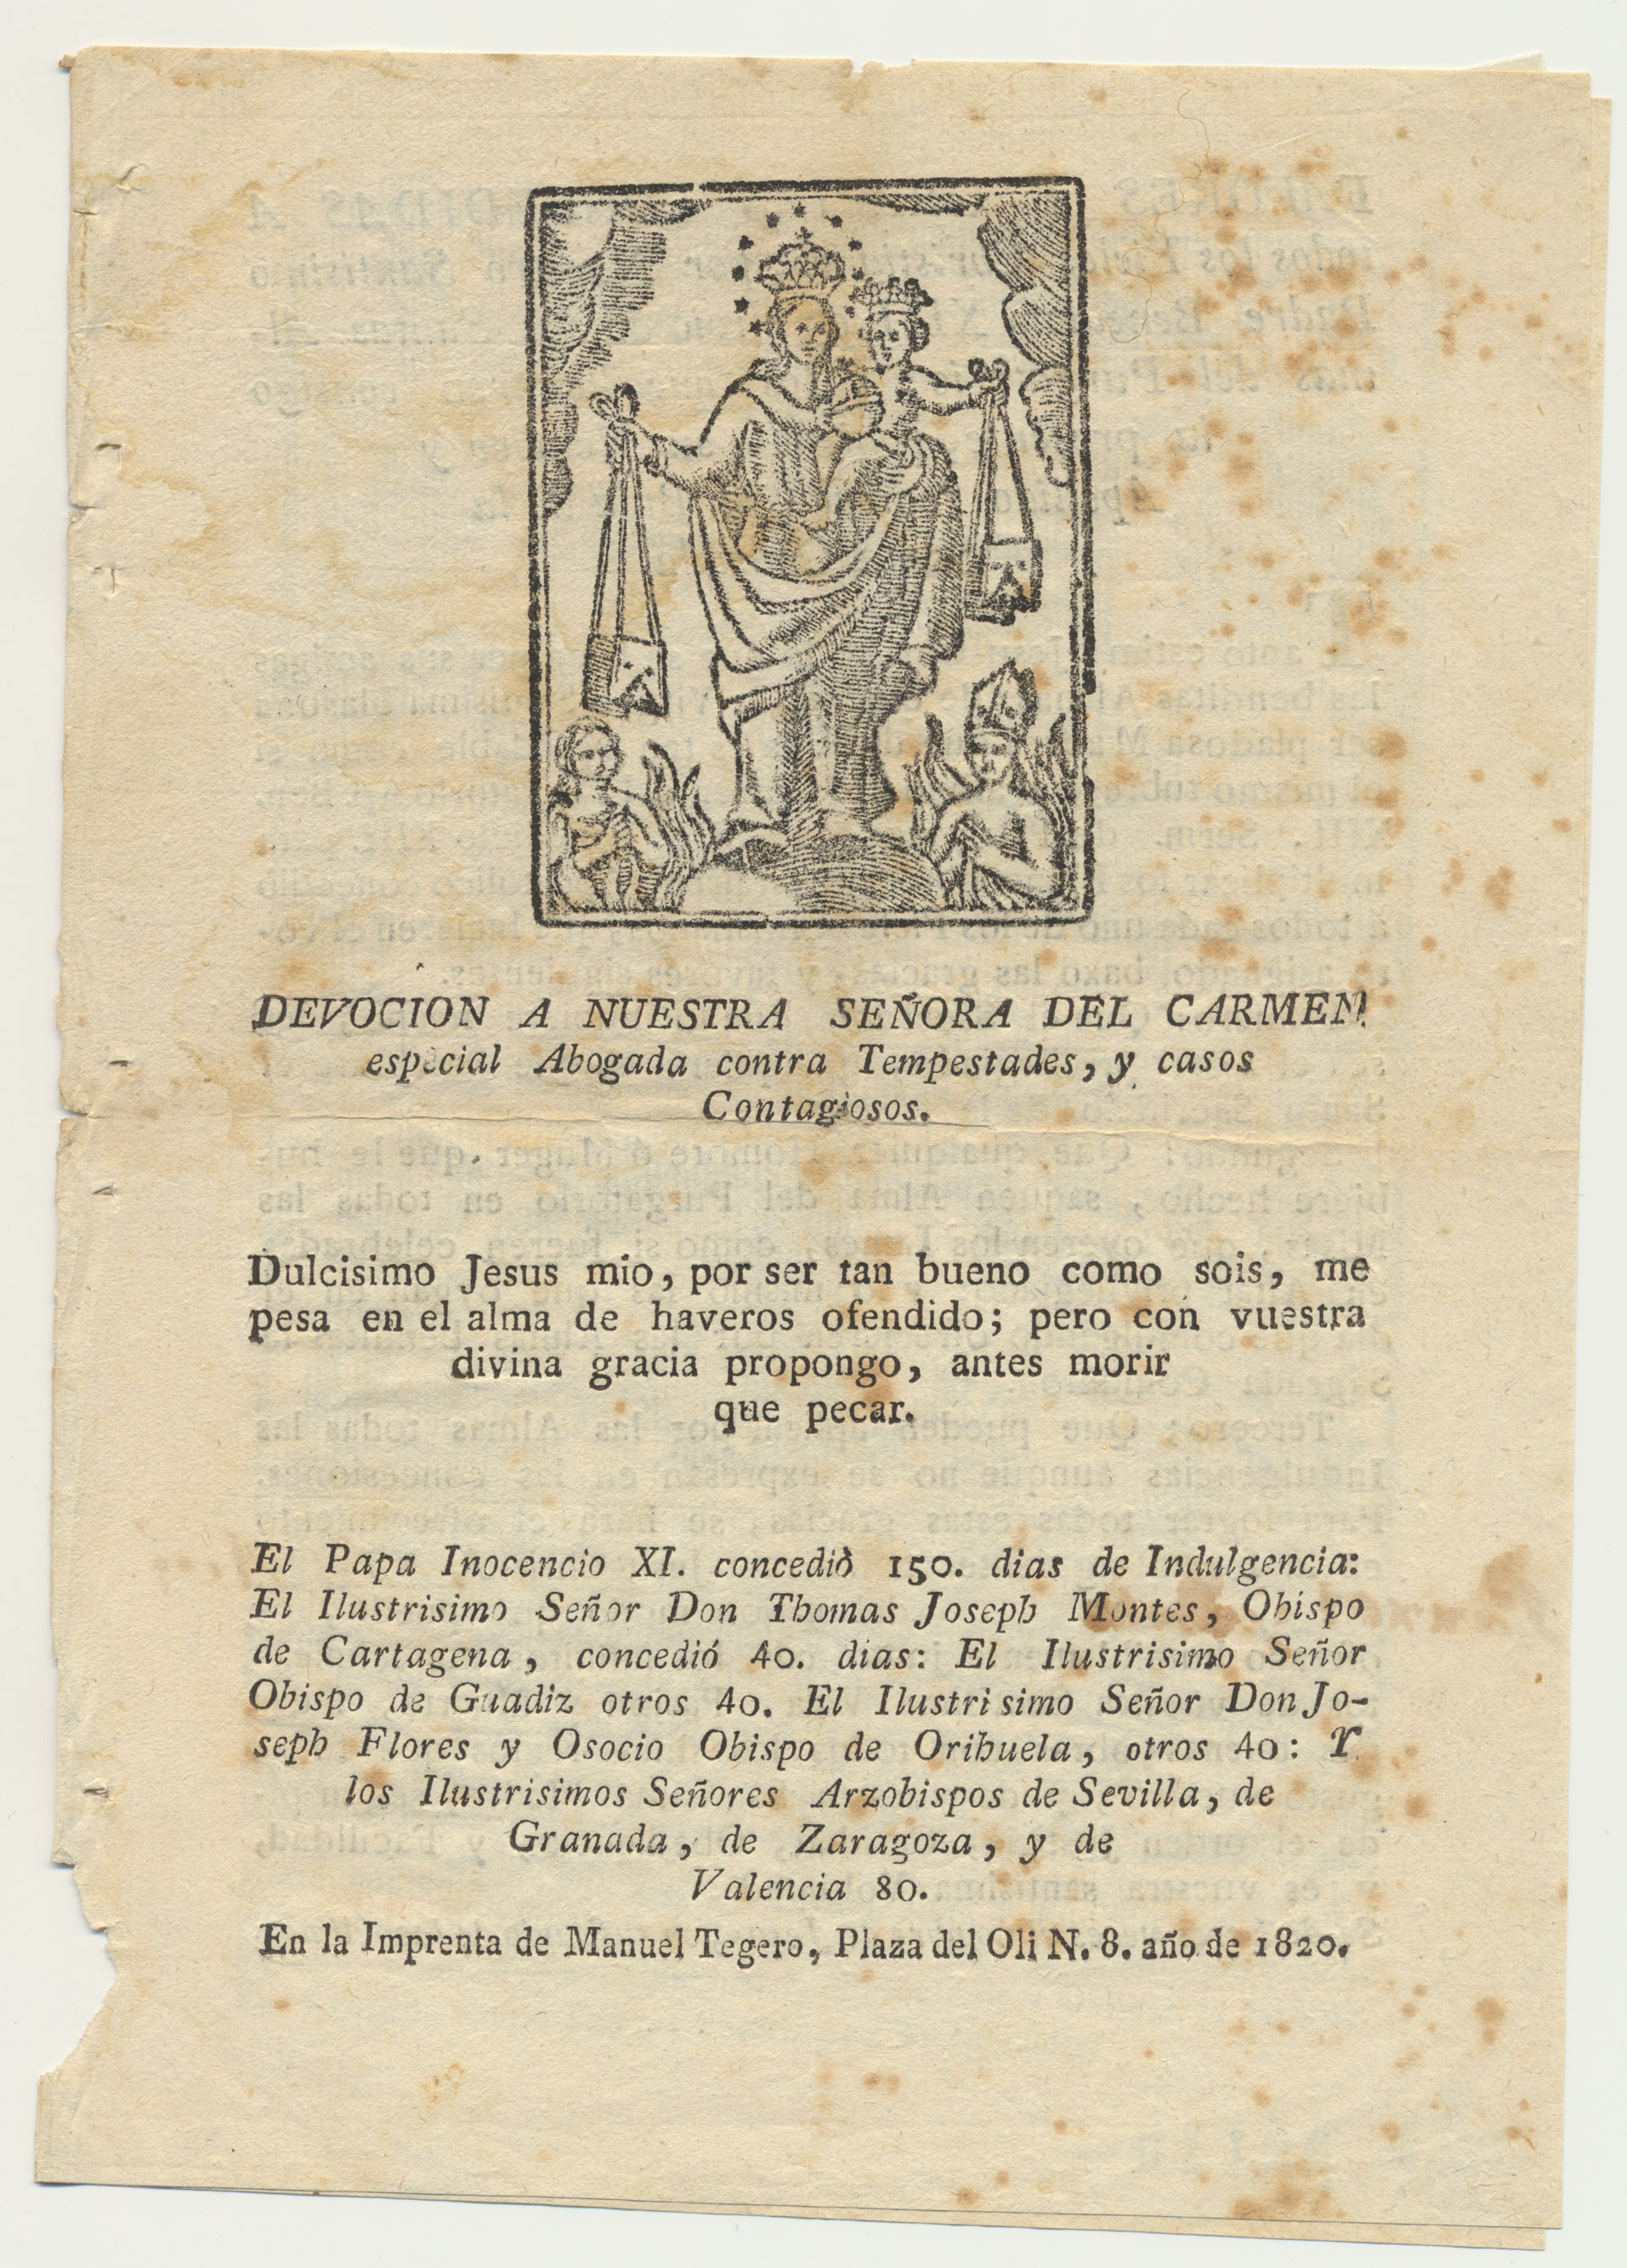 DEVOCION A NUESTRA SEÑORA DEL CARMEN
especial Abogada contra Tempestades, y casos
Contagiosos.
Dulcisimo Jesus mio, por ser tan bueno como sois, me
pesa en el alma de haveros ofendido; pero con vuestra
divina gracia propongo, antes morir
que pecar.
El Papa Inocencio XI. concediò 150. dias de Indulgencia:
El Ilustrisimo Señor Don Thomas Joseph Montes, Obispo
de Cartagena, concedió 40. dias: El Ilustrisimo Señor
Obispo de Guadiz otros 40. El Ilustrisimo Señor Don Jo-
seph Flores y Osocio Obispo de Orihuela, otros 40: Y
los Ilustrisimos Señores Arzobispos de Sevilla, de
Granada, de Zaragoza, y de
Valencia 80.
En la Imprenta de Manuel Tegero, Plaza del Oli N. 8. año de 1820.